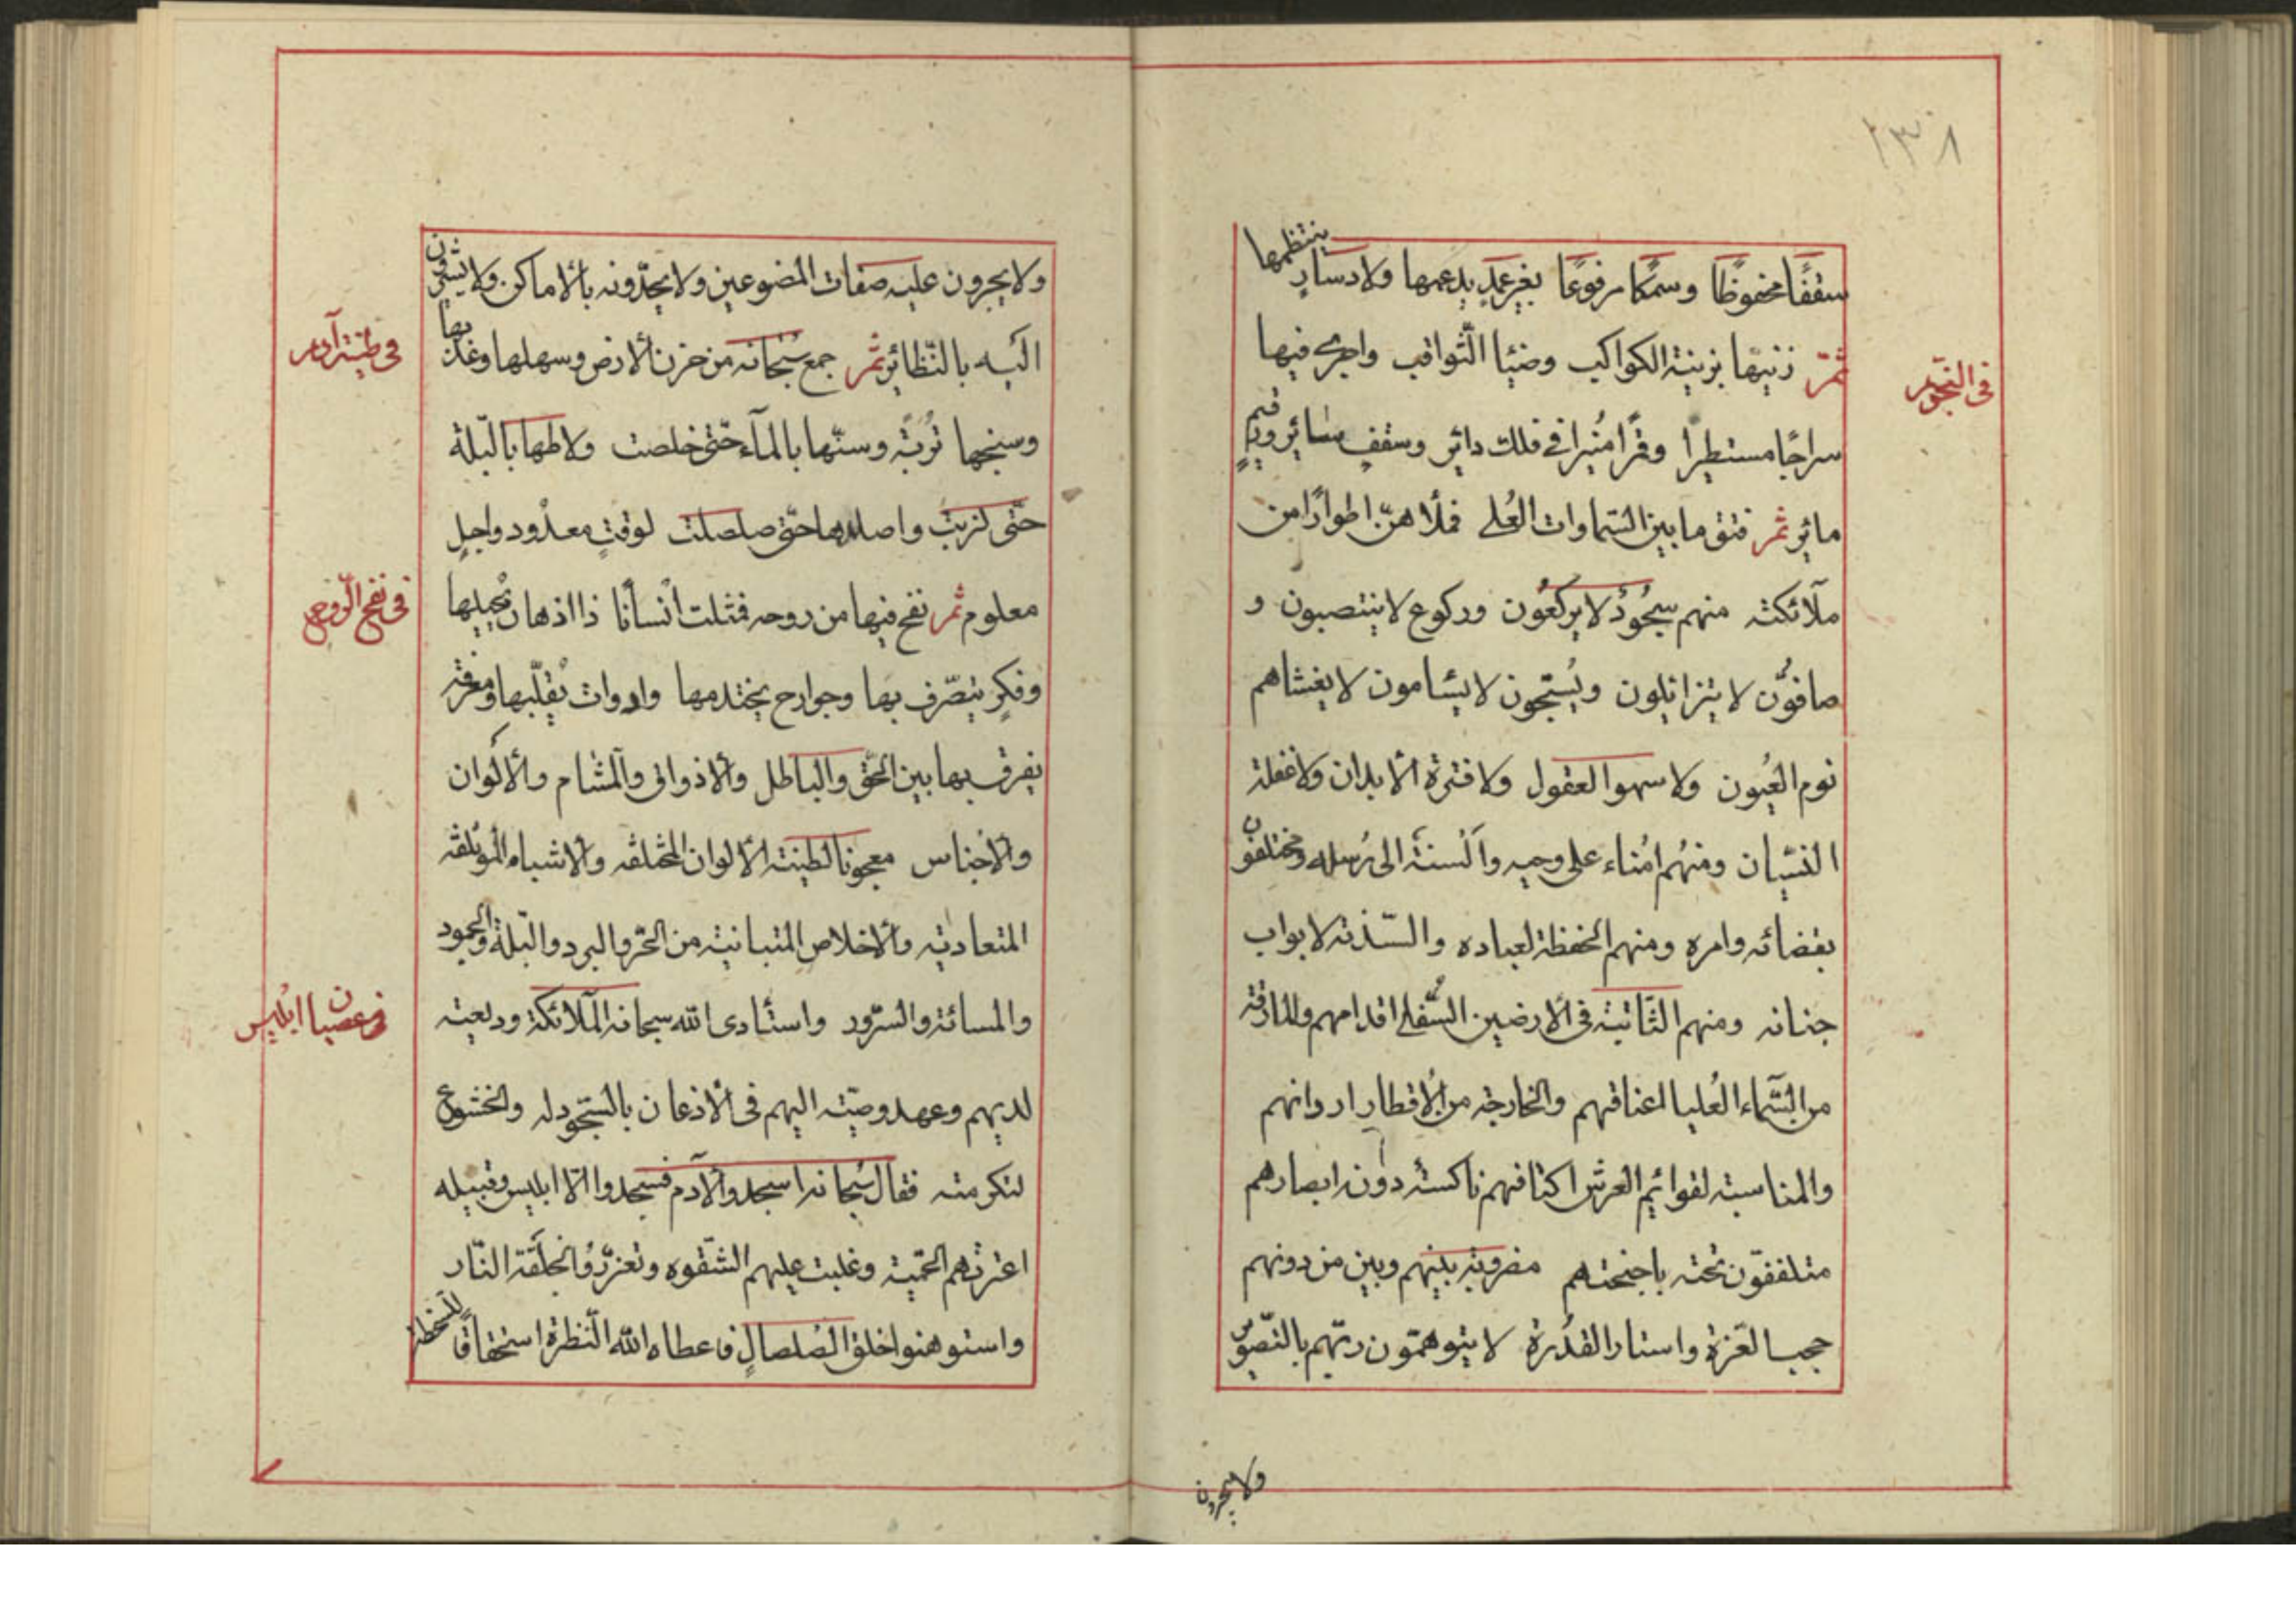 ١٣٠٨
سقفًا محفوظًا وسمكا مرفوعًا بغير عمدٍ يدعمها ولا دسارٍ ينتظمها
ثمّ زينها بزينة الكواكب وضيٓا الثّواقب واجرى فيها
في النّجوم
سراجًا مستطيرًا وقمرًا منيرا في فلك دائر وسقف سائر ورقيمٍ
مائر ثمر فتق ما بين السّماوات العُلى فملأ هنّ اطوارًا من
ملآئكته منهم سجُودٌ لا يركعُون وركوع لا ينتصبون و
صافوُّن لا يتزائلون ويُسبّحون لا يسٔامون لا يغشاهم
نوم العُيون ولا سهو العقول ولا فترة الأبدان ولا غفلة
النسّيان ومنهُم امُناء على وحيه والَسنة الى رُسله ومختلفون
بقضائه وامره ومنهم الحفظة لعباده والسّدنه لابواب
جنانه ومنهم الثّابتة في الأرضين السُّفلى اقدامهم والمارقة
من السَّماء العُليا اعناقهم والخارجه من الأقطار اروانهم
والمناسبته لقوائم العرش اكتافهم ناكسة دونه ابصارهم
متلففوّن تحته باجنحتهم مضروبة بينهم وبين من دونهم
حجب العّزة واستار القدُرة لا يتوهمّون ربّهم بالتصّوير
ولا يجرون
ولا يجرون عليه صفات المصنوعين ولا يحدّونه بالأماكن ولا يشيرون
اليه بالنّظائر ثمر جمع سُبحانه من حزن الأرض وسهلها وعذبها
في طينة آدم
وسبخها تُربةً وسنّها بالمآء حتّى خلصت ولاطها بالبّلة
حتّى لزبت واصلدها حتّى صلصلت لوقتٍ معدُود واجلٍ
معلوم ثمر نفخ فيها من روحه فمثلت انْسأنا ذا اذهان يُجيلها
في نفخ الرّوح
وفكرٍ يتصّرف بها وجوارح يختدمها وادوات يُقلّبها ومعرفة
يفرق بها بين الحقّ والباطل والأذواق والمشام والألوان
والأجناس معجونا بطينة الألوان المختلفه والأشباه المؤتلفة
المتعاديه والأخلاص المتباينة من الحرّ والبرد والبّلة والجمود
والمسائة والسّرور واستٔادى الله سبحانه الملآئكة وديعته
في عصيان ابليس
لديهم وعهد وصيّته اليهم في الأذعان بالسّجود له والخشوع
لتكرمته فقال سُبحانه اسجدوا لأدم فسجدوا الاّ ابليس وقبيله
اعترتهم الحميّة وغلبت عليهم الشّقوه وتعزّزوُا بخلقة النّار
واستوهنوا خلق الصّلصالِ فاعطاه الله النّظرة استحقاقًا للسّخطة